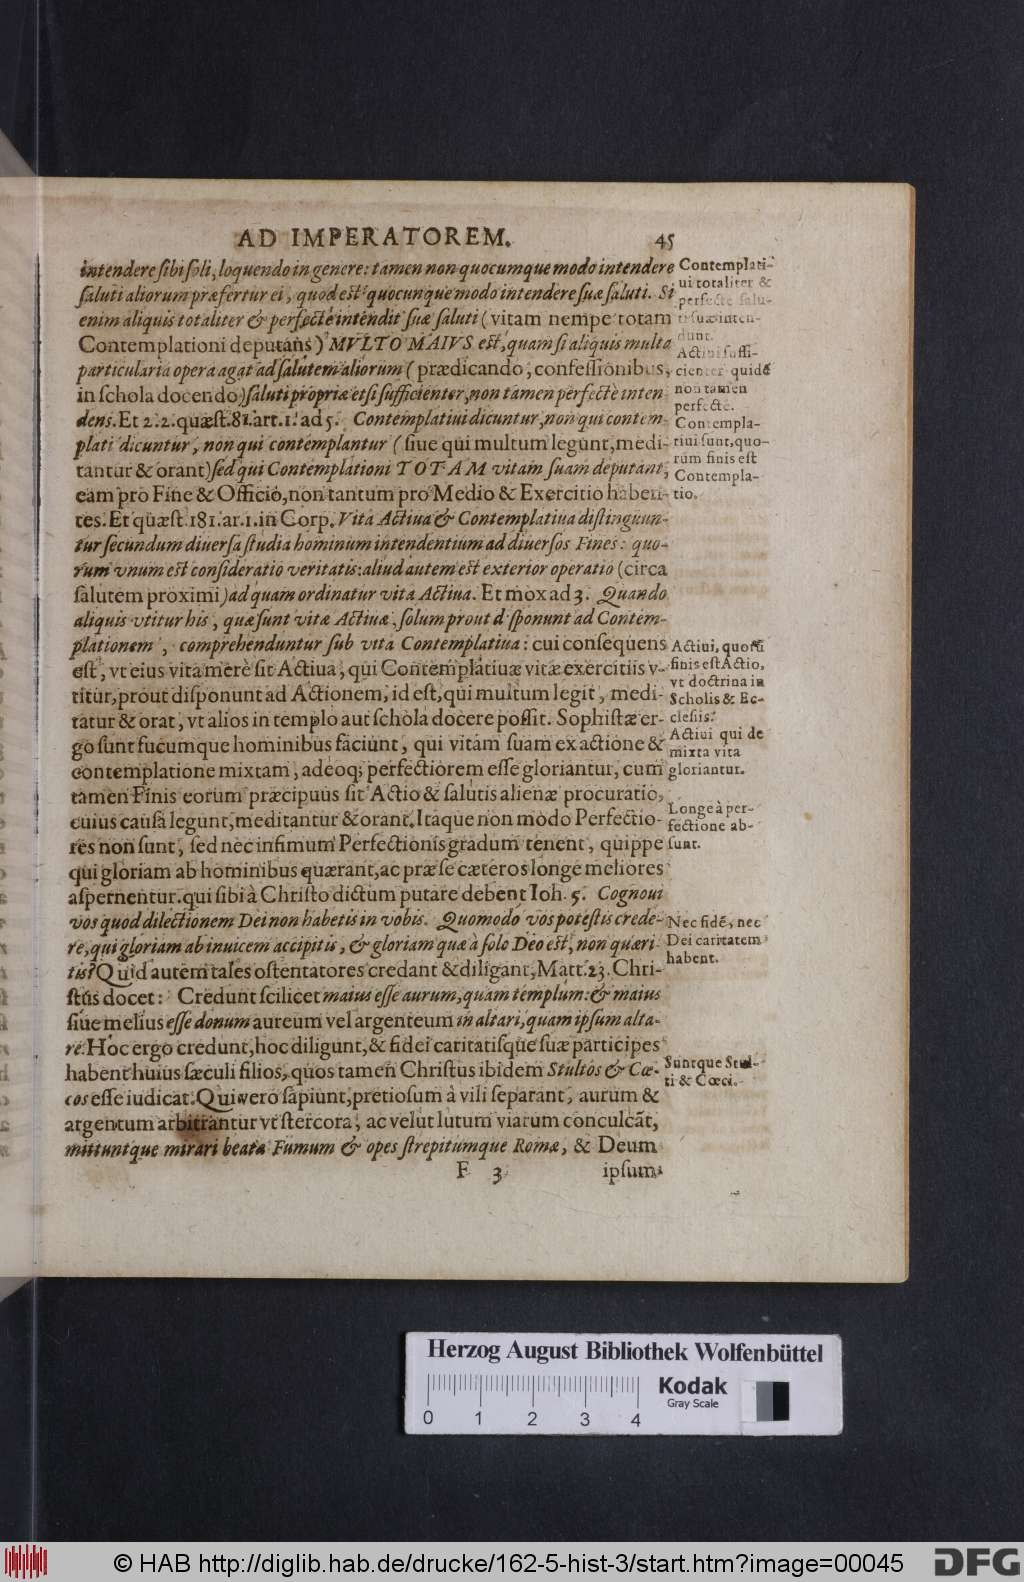 AD IMPERATOREM. 45
intendere sibi soli, loquendo in genere: tamen non quocumque modo intendere
saluti aliorum præfertur ei, quod est quocunque modo intendere suæ saluti. Si
enim aliquis totaliter & perfectè intendit suæ saluti (vitam nempe totam
Contemplationi deputans) MVLTO MAIVS est, quam si aliquis multa
particularia opera agat ad salutem aliorum (prædicando, confessionibus,
in schola docendo) saluti propriæ etsi sufficienter, non tamen perfectè inten
dens. Et 2. 2. quæst. 81. art. 1. ad 5. Contemplatiui dicuntur, non qui contem-
plati dicuntur, non qui contemplantur (siue qui multum legunt, medi-
tantur & orant) sed qui Contemplationi TOTAM vitam suam deputant,
eam pro Fine & Officio, non tantum pro Medio & Exercitio haben-
tes. Et quæst. 181. ar. 1. in Corp. Vita Actiua & Contemplatiua distinguun-
tur secundum diuersa studia hominum intendentium ad diuersos Fines: quo-
rum vnum est consideratio veritatis: aliud autem est exterior operatio (circa
salutem proximi) ad quam ordinatur vita Actiua. Et mox ad 3. Quando
aliquis vtitur his, quæ sunt vitæ Actiuæ, solum prout disponunt ad Contem-
plationem, comprehenduntur sub vita Contemplatiua: cui consequens
est, vt eius vita merè sit Actiua, qui Contemplatiuæ vitæ exercitiis v-
titur, prout disponunt ad Actionem, id est, qui multum legit, medi-
tatur & orat, vt alios in templo aut schola docere possit. Sophistæ er-
go sunt fucumque hominibus faciunt, qui vitam suam ex actione &
contemplatione mixtam, adeoq; perfectiorem esse gloriantur, cum
tamen Finis eorum præcipuus sit Actio & salutis alienæ procuratio,
cuius causa legunt, meditantur & orant. Itaque non modo Perfectio-
res non sunt, sed nec infimum Perfectionis gradum tenent, quippe
qui gloriam ab hominibus quærant, ac præ se cæteros longe meliores
aspernentur. qui sibi à Christo dictum putare debent Ioh. 5. Cognoui
vos quod dilectionem Dei non habetis in vobis. Quomodo vos potestis crede-
re, qui gloriam ab inuicem accipitis, & gloriam quæ à solo Deo est, non quæri
tis? Quid autem tales ostentatores credant & diligant, Matt. 23. Chri-
stus docet: Credunt scilicet maius esse aurum, quam templum: & maius
siue melius esse donum aureum vel argenteum in altari, quam ipsum alta-
re. Hoc ergo credunt, hoc diligunt, & fidei caritatisque suæ participes
habent huius sæculi filios, quos tamen Christus ibidem Stultos & Cœ-
cos esse iudicat. Qui vero sapiunt, pretiosum à vili separant, aurum &
argentum arbitrantur vt stercora, ac velut lutum viarum conculcāt,
mittuntque mirari beata Fumum & opes strepitumque Romæ, & Deum
F 3 ipsum
Contemplati-
ui totaliter &
perfecte salu-
ti suæ inten-
dunt.
Actiui suffi-
cienter quidē
non tamen
perfecte.
Contempla-
tiui sunt, quo-
rum finis est
Contempla-
tio.
Actiui, quorū
finis est Actio,
vt doctrina in
Scholis & Ec-
clesiis.
Actiui qui de
mixta vita
gloriantur.
Longe à per-
fectione ab-
sunt.
Nec fidē, nec
Dei caritatem
habent.
Suntque Stul-
ti & Cœci.
Herzog August Bibliothek Wolfenbüttel
0 1 2 3 4
Kodak
Gray Scale
© HAB http://diglib.hab.de/drucke/162-5-hist-3/start.htm?image=00045
DFG